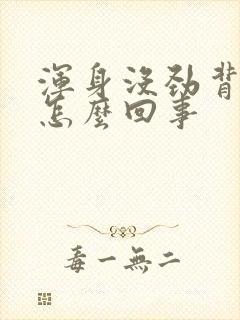 渾身沒勁背
怎麼回事
毒一無二